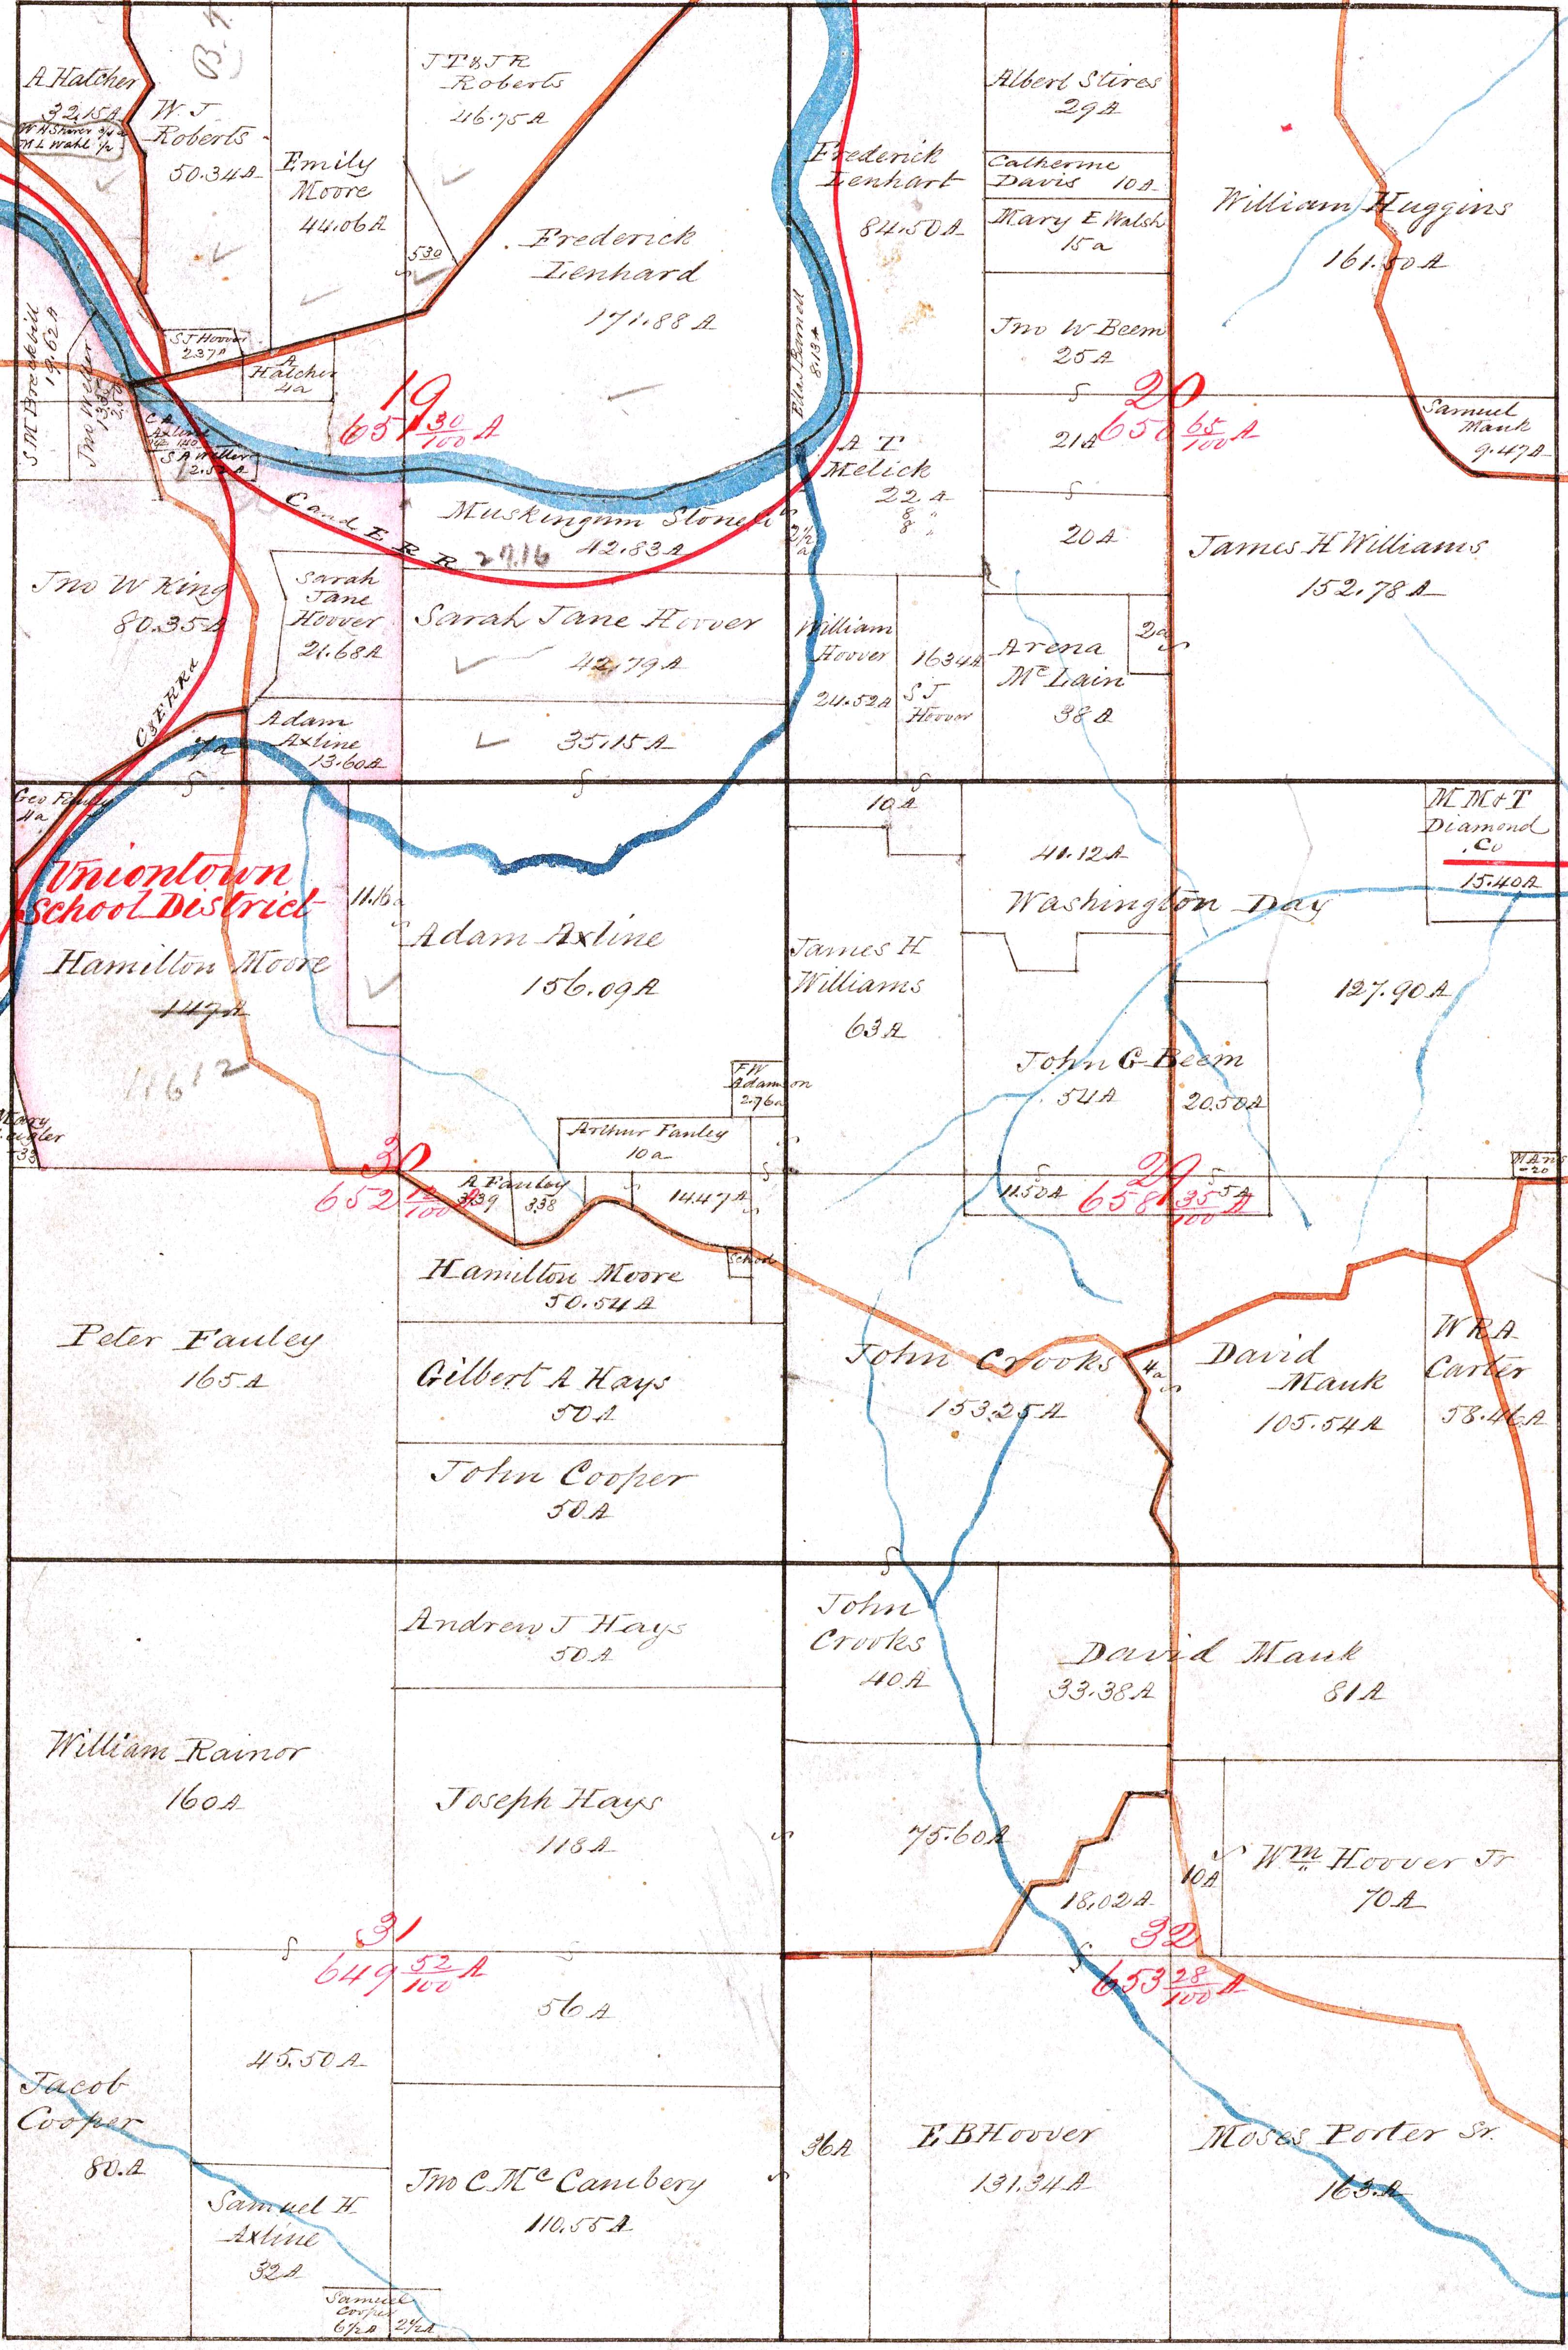 A Hatcher
32.15A
W J
Roberts
50.34A
Emily
Moore
44.06A
J T & J R
Roberts
46.75A
530
Frederick
Lenhard
171.88 A
S J Hoover
2.37A
A
Hatcher
4a
S M Breckbill
19.62A
S A Willer
2.52A
19
651 30/100 A
Frederick
Lenhart
84.50A
8.13A
Albert Stires
29A
Catherine
Davis 10A
Mary E Walsh
15a
Jno W Beem
25A
William Huggins
161.50A
20
650 65/100 A
Samuel
Mauk
9.47A
21A
20A
A T
Melick
22 A
8 "
8 "
2 1/2 a
James H Williams
152.78A
C and E R R
Muskingum Stone
42.83A
27.16
Jno W King
80.35A
Sarah
Jane
Hoover
21.68A
Sarah Jane Hoover
42.79A
William
Hoover
24.52A
16.34A
S J
Hoover
Arena
Mc Lain
38A
2a
7a
Adam
Axline
13.60A
35.15A
Geo Fauley
4a
Uniontown
School District
Hamilton Moore
147A
11612
11.16a
Adam Axline
156.09A
F W
Adamson
2.76a
Arthur Fauley
10a
30
652 12/100 A
A Fauley
3.39
3.38
14.47A
School
Hamilton Moore
50.54A
Peter Fauley
165A
Gilbert A Hays
50A
John Cooper
50A
10A
41.12A
Washington Day
M M & T
Diamond
Co
15.40A
James H
Williams
63A
127.90A
John G Beem
54A
20.50A
29
658 35/100 A
11.50A
5A
John Crooks
153.25A
4a
David
Mauk
105.54A
W R A
Carter
58.46A
William Rainor
160A
Andrew J Hays
50A
Joseph Hays
118A
31
649 52/100 A
56A
45.50A
Jacob
Cooper
80.A
Samuel H
Axline
32A
Jno C Mc Cambery
110.55A
Samuel
Cooper
6 1/2 A
2 1/2 A
John
Crooks
40A
David Mauk
33.38A
81A
75.60A
18.02A
10A
Wm Hoover Jr
70A
32
653 28/100 A
36A
E B Hoover
131.34A
Moses Porter Sr.
163.A